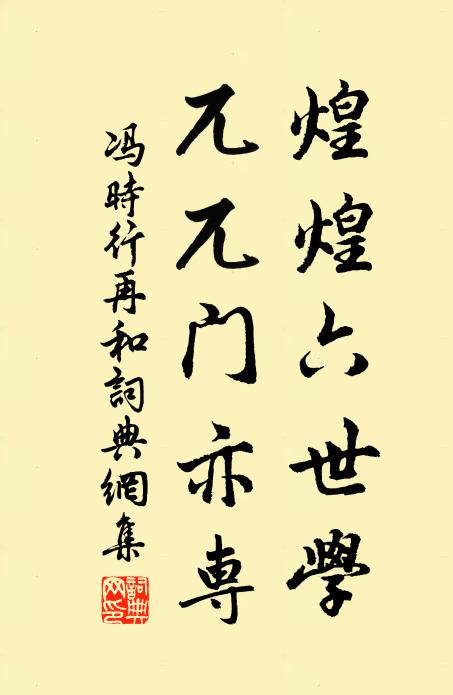 煌煌六世學
兀兀門亦専
冯時行再和詞典網集
詞典網印